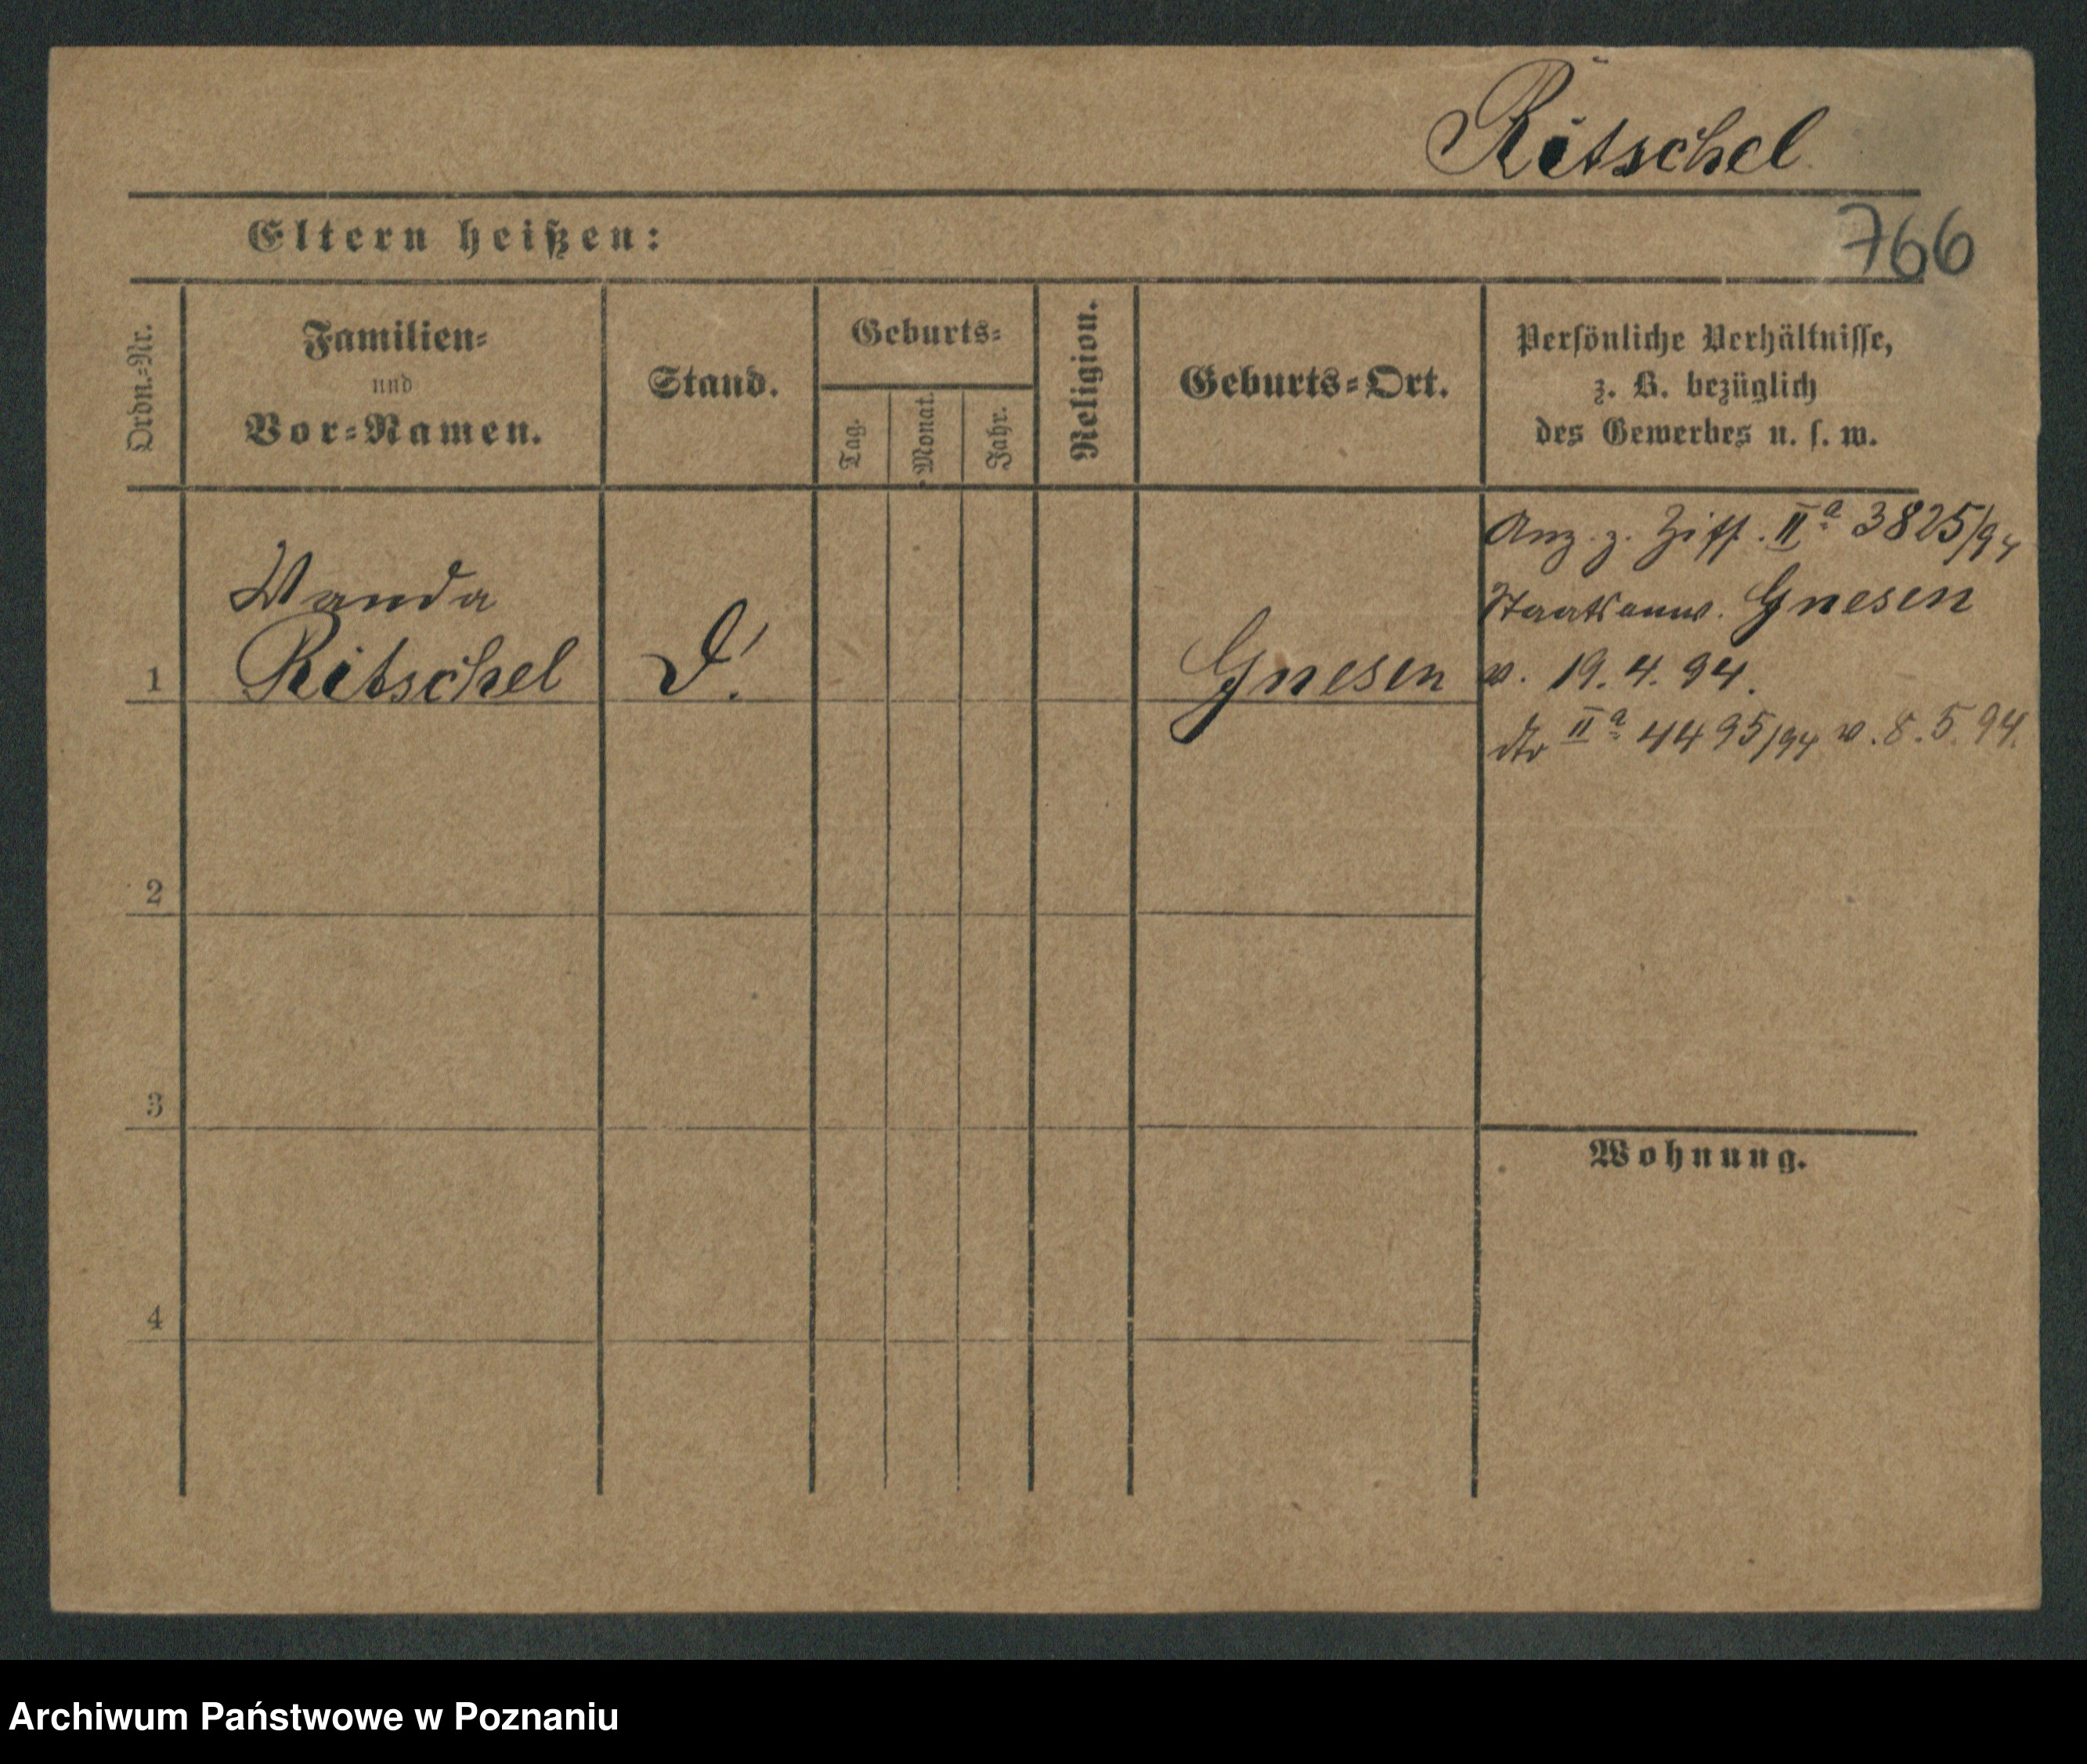 Ritschel
Eltern heißen:
766
Ordn.-Nr.
Familien-
und
Vor-Namen.
Stand.
Geburts-
Tag.
Monat.
Jahr.
Religion.
Geburts-Ort.
Persönliche Verhältnisse,
z. B. bezüglich
des Gewerbes u. s. w.
1
Wanda
Ritschel
D.
Gnesen
z. Ziff. IIa 3825/94
Staatsanw. Gnesen
v. 19. 4. 94.
dto IIa 4495/94 v. 8. 5. 94.
2
3
4
Wohnung.
Archiwum Państwowe w Poznaniu